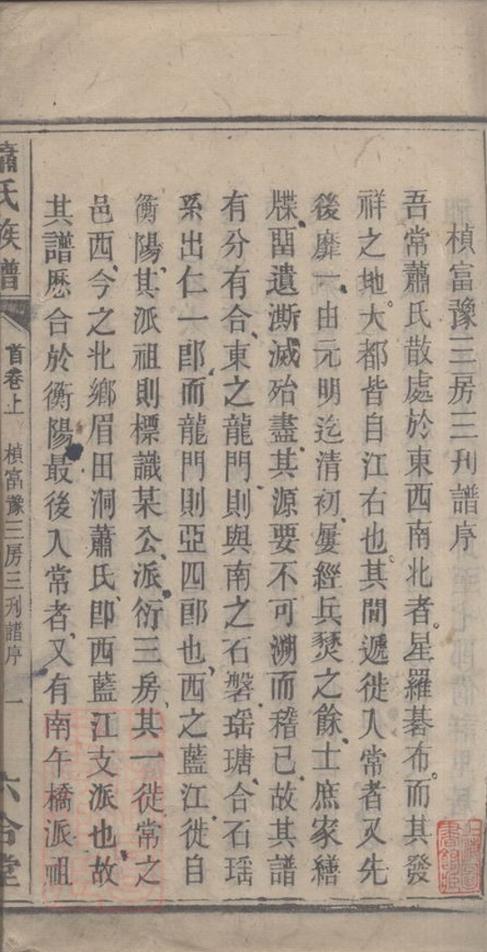 楨富豫三房三刊譜序
吾常蕭氏散處於東西南北者星羅碁布而其發
祥之地大都皆自江右也其間遞徙入常者又先
後靡一由元明迄清初屢經兵燹之餘士庶家繕
牒畱遺澌滅殆盡其源要不可溯而稽已故其譜
有分有合東之龍門則與南之石磐瑶瑭合石瑶
系出仁一郎而龍門則亞四郎也西之藍江徙自
衡陽其派祖則標識某公派衍三房其一徙常之
邑西今之北鄉眉田洞蕭氏卽西藍江支派也故
其譜歷合於衡陽最後入常者又有南午橋派祖
蕭氏族譜
首卷上
楨富豫三房三刊譜序
一
六合堂